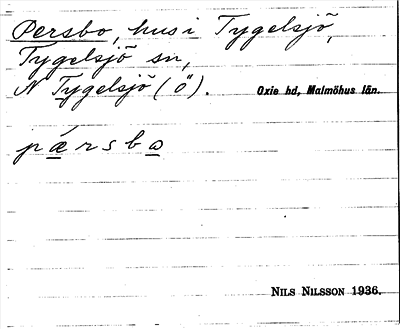 Persbo, hus i Tygelsjö,
Tygelsjö sn,
N Tygelsjö (ö). Oxie hd, Malmöhus län.
pǽrsbo
NILS NILSSON 1936.